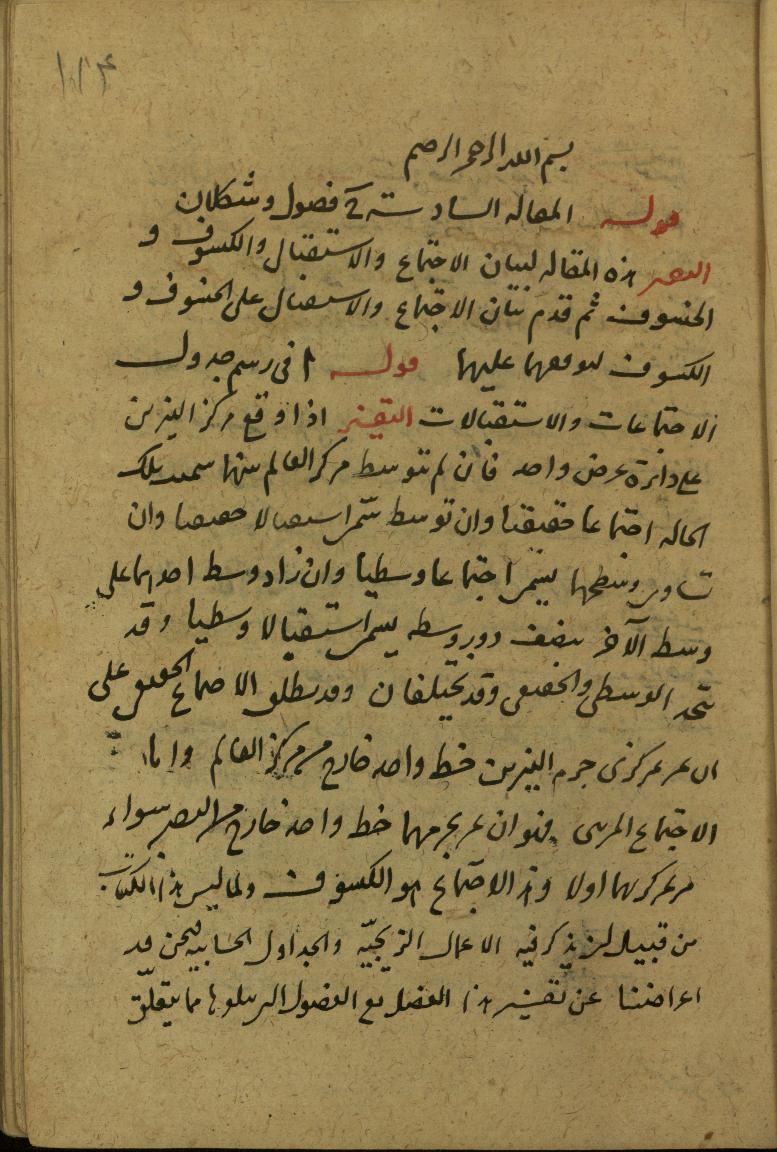 ١١٤
بسم الله الرحمن الرحيم
قوله المقاله السادسة فصول وشكلان
التفسير هذه المقاله لبيان الاجتماع والاستقبال والكسوف و
الخسوف ثم قدم بيان الاجتماع والاستقبال على الخسوف و
الكسوف لتوقفهما عليهما قوله ا فى رسم جدول
الاجتماعات والاستقبالات التفسير اذا وقع مركز النيرين
على دايرة عرض واحد فان لم يتوسط مركز العالم بينهما سميت تلك
الحاله اجتماعا حقيقيا وان توسط سمى استقبالا حقيقيا وان
تساوى وسطهما يسمى اجتماعا وسطيا وان زاد وسط احدهما على
وسط الآخر بنصف دور وسطه يسمى استقبالا وسطيا وقد
يتحد الوسطى والحقيقى وقد يختلفان وقد يطلق الاجتماع الحقيقى على
ان يمر بمركزى جرم النيرين خط واحد خارج من مركز العالم واما
الاجتماع المرئى فهو ان يمر بجرمهما خط واحد خارج من البصر سواء
مر بمركزيهما اولا وهذا الاجتماع هو الكسوف ولما ليس هذا الكتاب
من قبيل ان يذكر فيه الاعمال الزيجيّه والجداول الحسابيه فنحن قد
اعرضنا عن تفسير هذا الفصل مع الفصول التى يتلوها مما يتعلّق